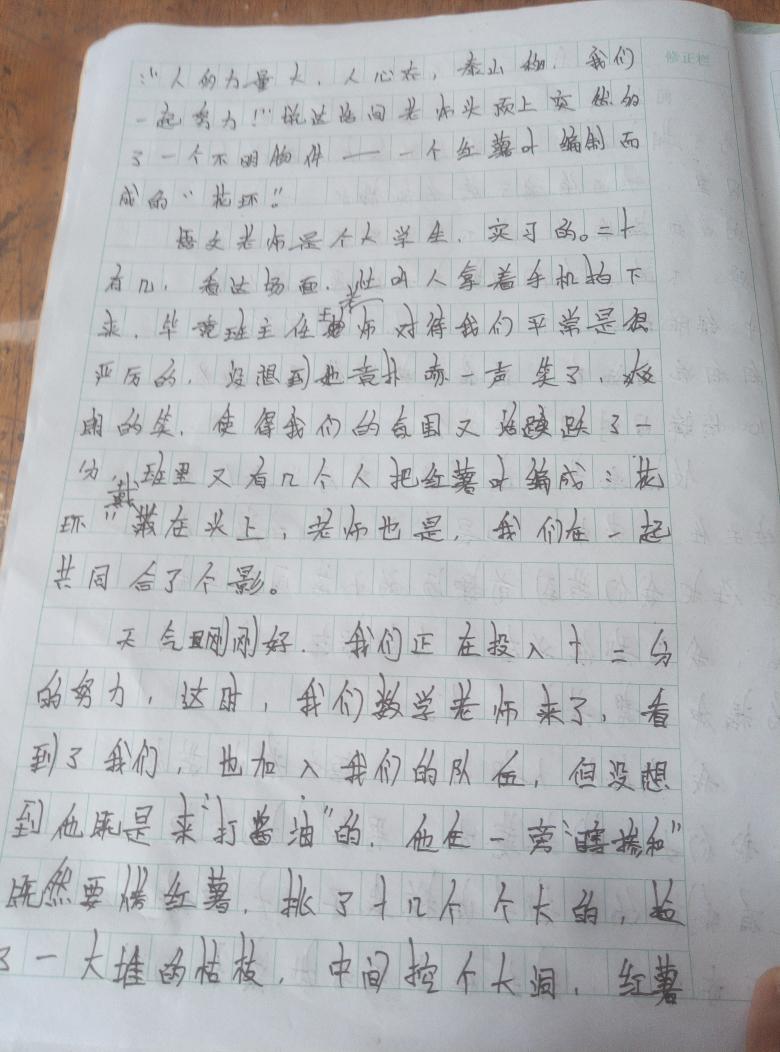 ：“人的力量大，人心齐，泰山移，我们
修正栏
一起努力！”说这话间老师头顶上突然的
了一个不明物件——一个红薯叶编制而
成的“花环”
语文老师是个大学生，实习的。二十
有几，看这场面，让叫人拿着手机拍下
来，毕竟班主任王老师对待我们平常是很
严厉的，没想到她竟扑哧一声笑了，
朗的笑，使得我们的氛围又活跃了一
分，班里又有几个人把红薯叶编成“花
环”戴在头上，老师也是，我们在一起
共同合了个影。
天气刚刚好，我们正在投入十二分
的努力，这时，我们数学老师来了，看
到了我们，也加入我们的队伍，但没想
到他既是来“打酱油”的，他在一旁“瞎掺和”
既然要烤红薯，挑了十几个个大的，捡
了一大堆的枯枝，中间挖个大洞，红薯